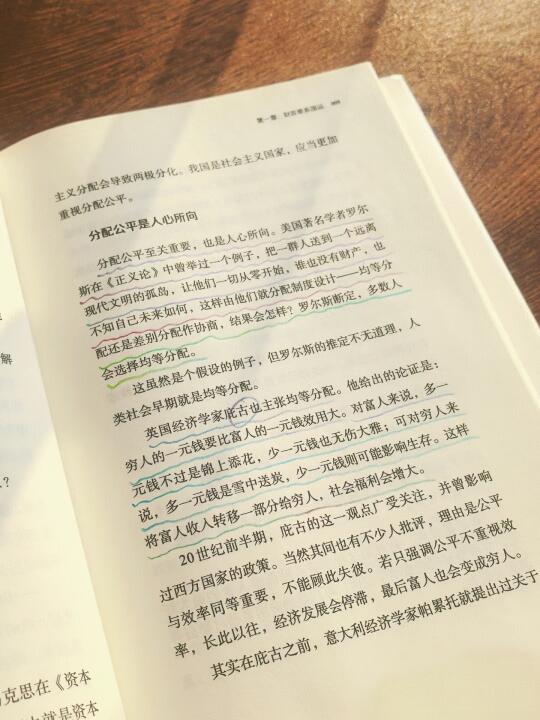 第一章 财富牵系国运 009
主义分配会导致两极分化。我国是社会主义国家，应当更加
重视分配公平。
分配公平是人心所向
分配公平至关重要，也是人心所向。美国著名学者罗尔
斯在《正义论》中曾举过一个例子，把一群人送到一个远离
现代文明的孤岛，让他们一切从零开始，谁也没有财产，也
不知自己未来如何，这样由他们就分配制度设计——均等分
配还是差别分配作协商，结果会怎样？罗尔斯断定，多数人
会选择均等分配。
这虽然是个假设的例子，但罗尔斯的推定不无道理，人
类社会早期就是均等分配。
英国经济学家庇古也主张均等分配。他给出的论证是：
穷人的一元钱要比富人的一元钱效用大。对富人来说，多一
元钱不过是锦上添花，少一元钱也无伤大雅；可对穷人来
说，多一元钱是雪中送炭，少一元钱则可能影响生存。这样
将富人收入转移一部分给穷人，社会福利会增大。
20世纪前半期，庇古的这一观点广受关注，并曾影响
过西方国家的政策。当然其间也有不少人批评，理由是公平
与效率同等重要，不能顾此失彼。若只强调公平不重视效
率，长此以往，经济发展会停滞，最后富人也会变成穷人。
其实在庇古之前，意大利经济学家帕累托就提出过关于
解
？
克思在《资本
就是资本